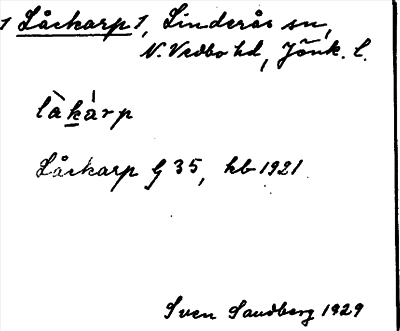 1 Låckarp 1, Linderås sn,
N. Vedbo hd, Jönk. l.
làkárp
Låckarp G 35, hb 1921
Sven Sandberg 1929